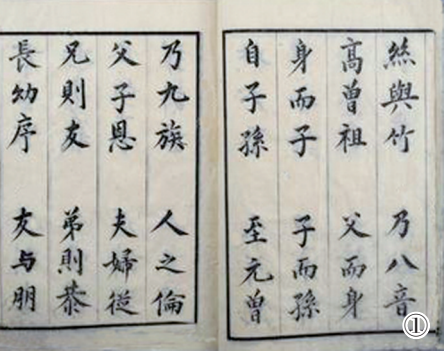 絲與竹 乃八音
高曾祖 父而身
身而子 子而孫
自子孫 至元曾
乃九族 人之倫
父子恩 夫婦從
兄則友 弟則恭
長幼序 友与朋
①